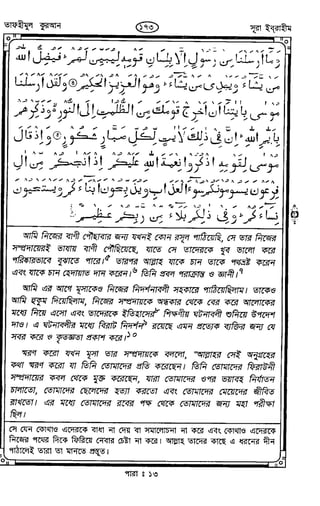 তাফহীমুল কুরআন
১৭৩
সূরা ইবরাহীম
وَمَا أَرْسَلْنَا مِنْ رَسُولٍ إِلَّا بِلِسَانِ قَوْمِهِ لِيُبَيِّنَ لَهُمْ فَيُضِلُّ اللَّهُ
مَنْ يَشَاءُ وَيَهْدِي مَنْ يَشَاءُ وَهُوَ الْعَزِيزُ الْحَكِيمُ ④ وَلَقَدْ أَرْسَلْنَا
مُوسَى بِآيَاتِنَا أَنْ أَخْرِجْ قَوْمَكَ مِنَ الظُّلُمَاتِ إِلَى النُّورِ وَذَكِّرْهُمْ
بِأَيَّامِ اللَّهِ إِنَّ فِي ذَلِكَ لَآيَاتٍ لِكُلِّ صَبَّارٍ شَكُورٍ ⑤ وَإِذْ قَالَ
مُوسَى لِقَوْمِهِ اذْكُرُوا نِعْمَةَ اللَّهِ عَلَيْكُمْ إِذْ أَنْجَاكُمْ مِنْ آلِ
فِرْعَوْنَ يَسُومُونَكُمْ سُوءَ الْعَذَابِ وَيُذَبِّحُونَ أَبْنَاءَكُمْ وَيَسْتَحْيُونَ
نِسَاءَكُمْ وَفِي ذَلِكُمْ بَلَاءٌ مِنْ رَبِّكُمْ عَظِيمٌ
আমি নিজের বাণী পৌছাবার জন্য যখনই কোন রসূল পাঠিয়েছি, সে তার নিজের
সম্প্রদায়েরই ভাষায় বাণী পৌছিয়েছে, যাতে সে তাদেরকে খুব ভালো করে
পরিষ্কারভাবে বুঝাতে পারে।৫ তারপর আল্লাহ যাকে চান তাকে পথভ্রষ্ট করেন
এবং যাকে চান হেদায়াত দান করেন।৬ তিনি প্রবল পরাক্রান্ত ও জ্ঞানী।৭
আমি এর আগে মূসাকেও নিজের নিদর্শনাবলী সহকারে পাঠিয়েছিলাম। তাকেও
আমি হুকুম দিয়েছিলাম, নিজের সম্প্রদায়কে অন্ধকার থেকে বের করে আলোকের
মধ্যে নিয়ে এসো এবং তাদেরকে ইতিহাসের৮ শিক্ষণীয় ঘটনাবলী শুনিয়ে উপদেশ
দাও। এ ঘটনাবলীর মধ্যে বিরাট নিদর্শন৯ রয়েছে এমন প্রত্যেক ব্যক্তির জন্য যে
সবর করে ও কৃতজ্ঞতা প্রকাশ করে।১০
স্মরণ করো যখন মূসা তার সম্প্রদায়কে বললো, "আল্লাহর সেই অনুগ্রহের
কথা স্মরণ করো যা তিনি তোমাদের প্রতি করেছেন। তিনি তোমাদের ফিরাউনী
সম্প্রদায়ের কবল থেকে মুক্ত করেছেন, যারা তোমাদের ওপর ভয়াবহ নির্যাতন
চালাতো, তোমাদের ছেলেদের হত্যা করতো এবং তোমাদের মেয়েদের জীবিত
রাখতো। এর মধ্যে তোমাদের রবের পক্ষ থেকে তোমাদের জন্য মহা পরীক্ষা
ছিল।
সে যেন কোথাও এদেরকে বাধা না দেয় বা সমালোচনা না করে এবং কোথাও এদেরকে
নিজের পথের দিকে ফিরিয়ে নেবার চেষ্টা না করে। আল্লাহ তাদের কাছে এ ধরনের দীন
পাঠালেই তারা তা মানতে প্রস্তুত।
পারা : ১৩